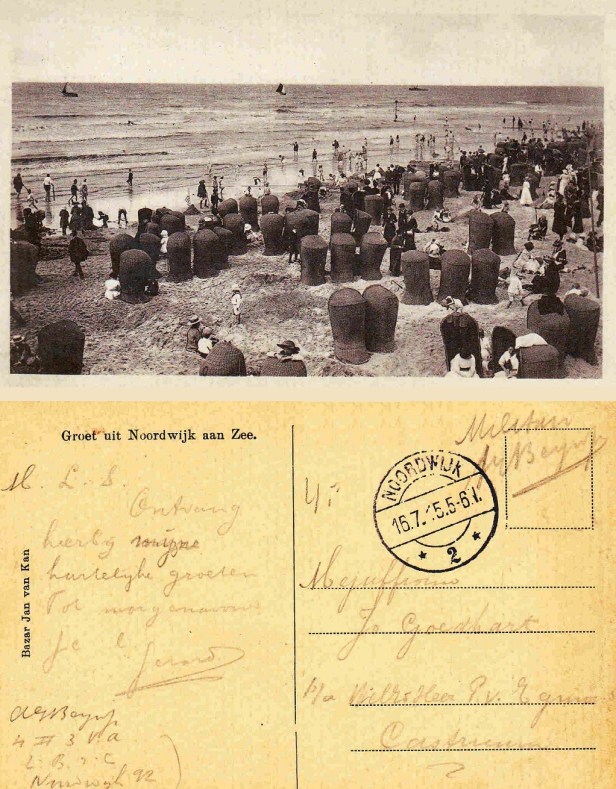 Groet uit Noordwijk aan Zee.
Bazar Jan van Kan
M. L. S.
Ontvang
hierbij mijne
hartelijke groeten
Tot morgenavond
Je
Gerard
4 II 3
L. B.
Noordwijk 92
Militair
NOORDWIJK
16.7.15.5-6.V.
2
Mejuffrouw
Jo Goedhart
p/a P. v. Egmo
Castricum